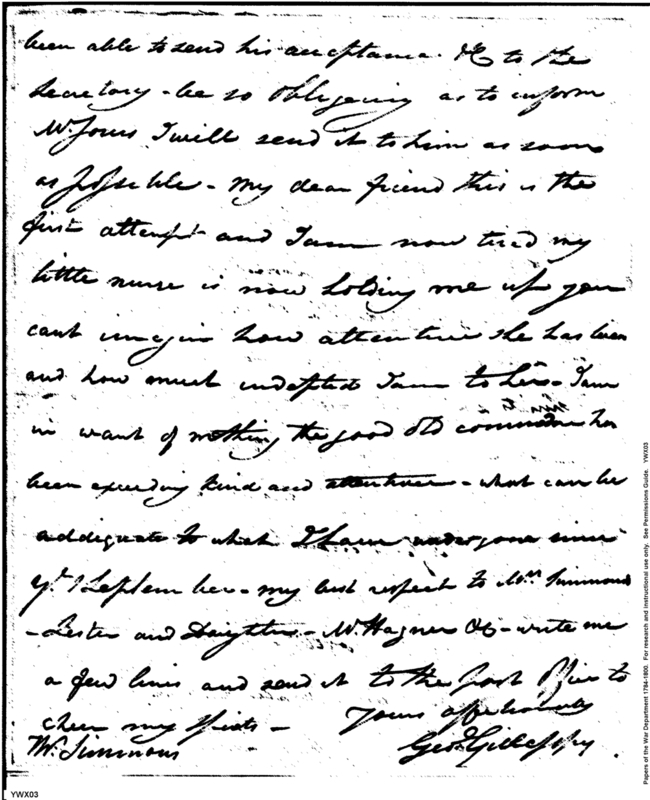 been able to send his acceptance. &C to the
Secretary - be so obligeing as to inform
Mr Jones I will send it to him as soon
as possible - My dear friend this is the
first attempt and I am now tired my
little nurse is now holding me up you
cant imagin how attentive she has been
and how much indepted I am to her - I am
in want of nothing the good old commodore has
been exceeding kind and attentive - what can be
addiquate to what I have undergone since
ye 1 September - my best respect to Mrs Simmons
- Sester and Daighter - Mr Hagner &C - write me
a few lines and send it to the post Office to
cheer my spirits -
Yours affectionately
Wm Simmons
Geo. Gillasspy
Papers of the War Department 1784-1800. For research and instructional use only. See Permissions Guide. YWX03
YWX03